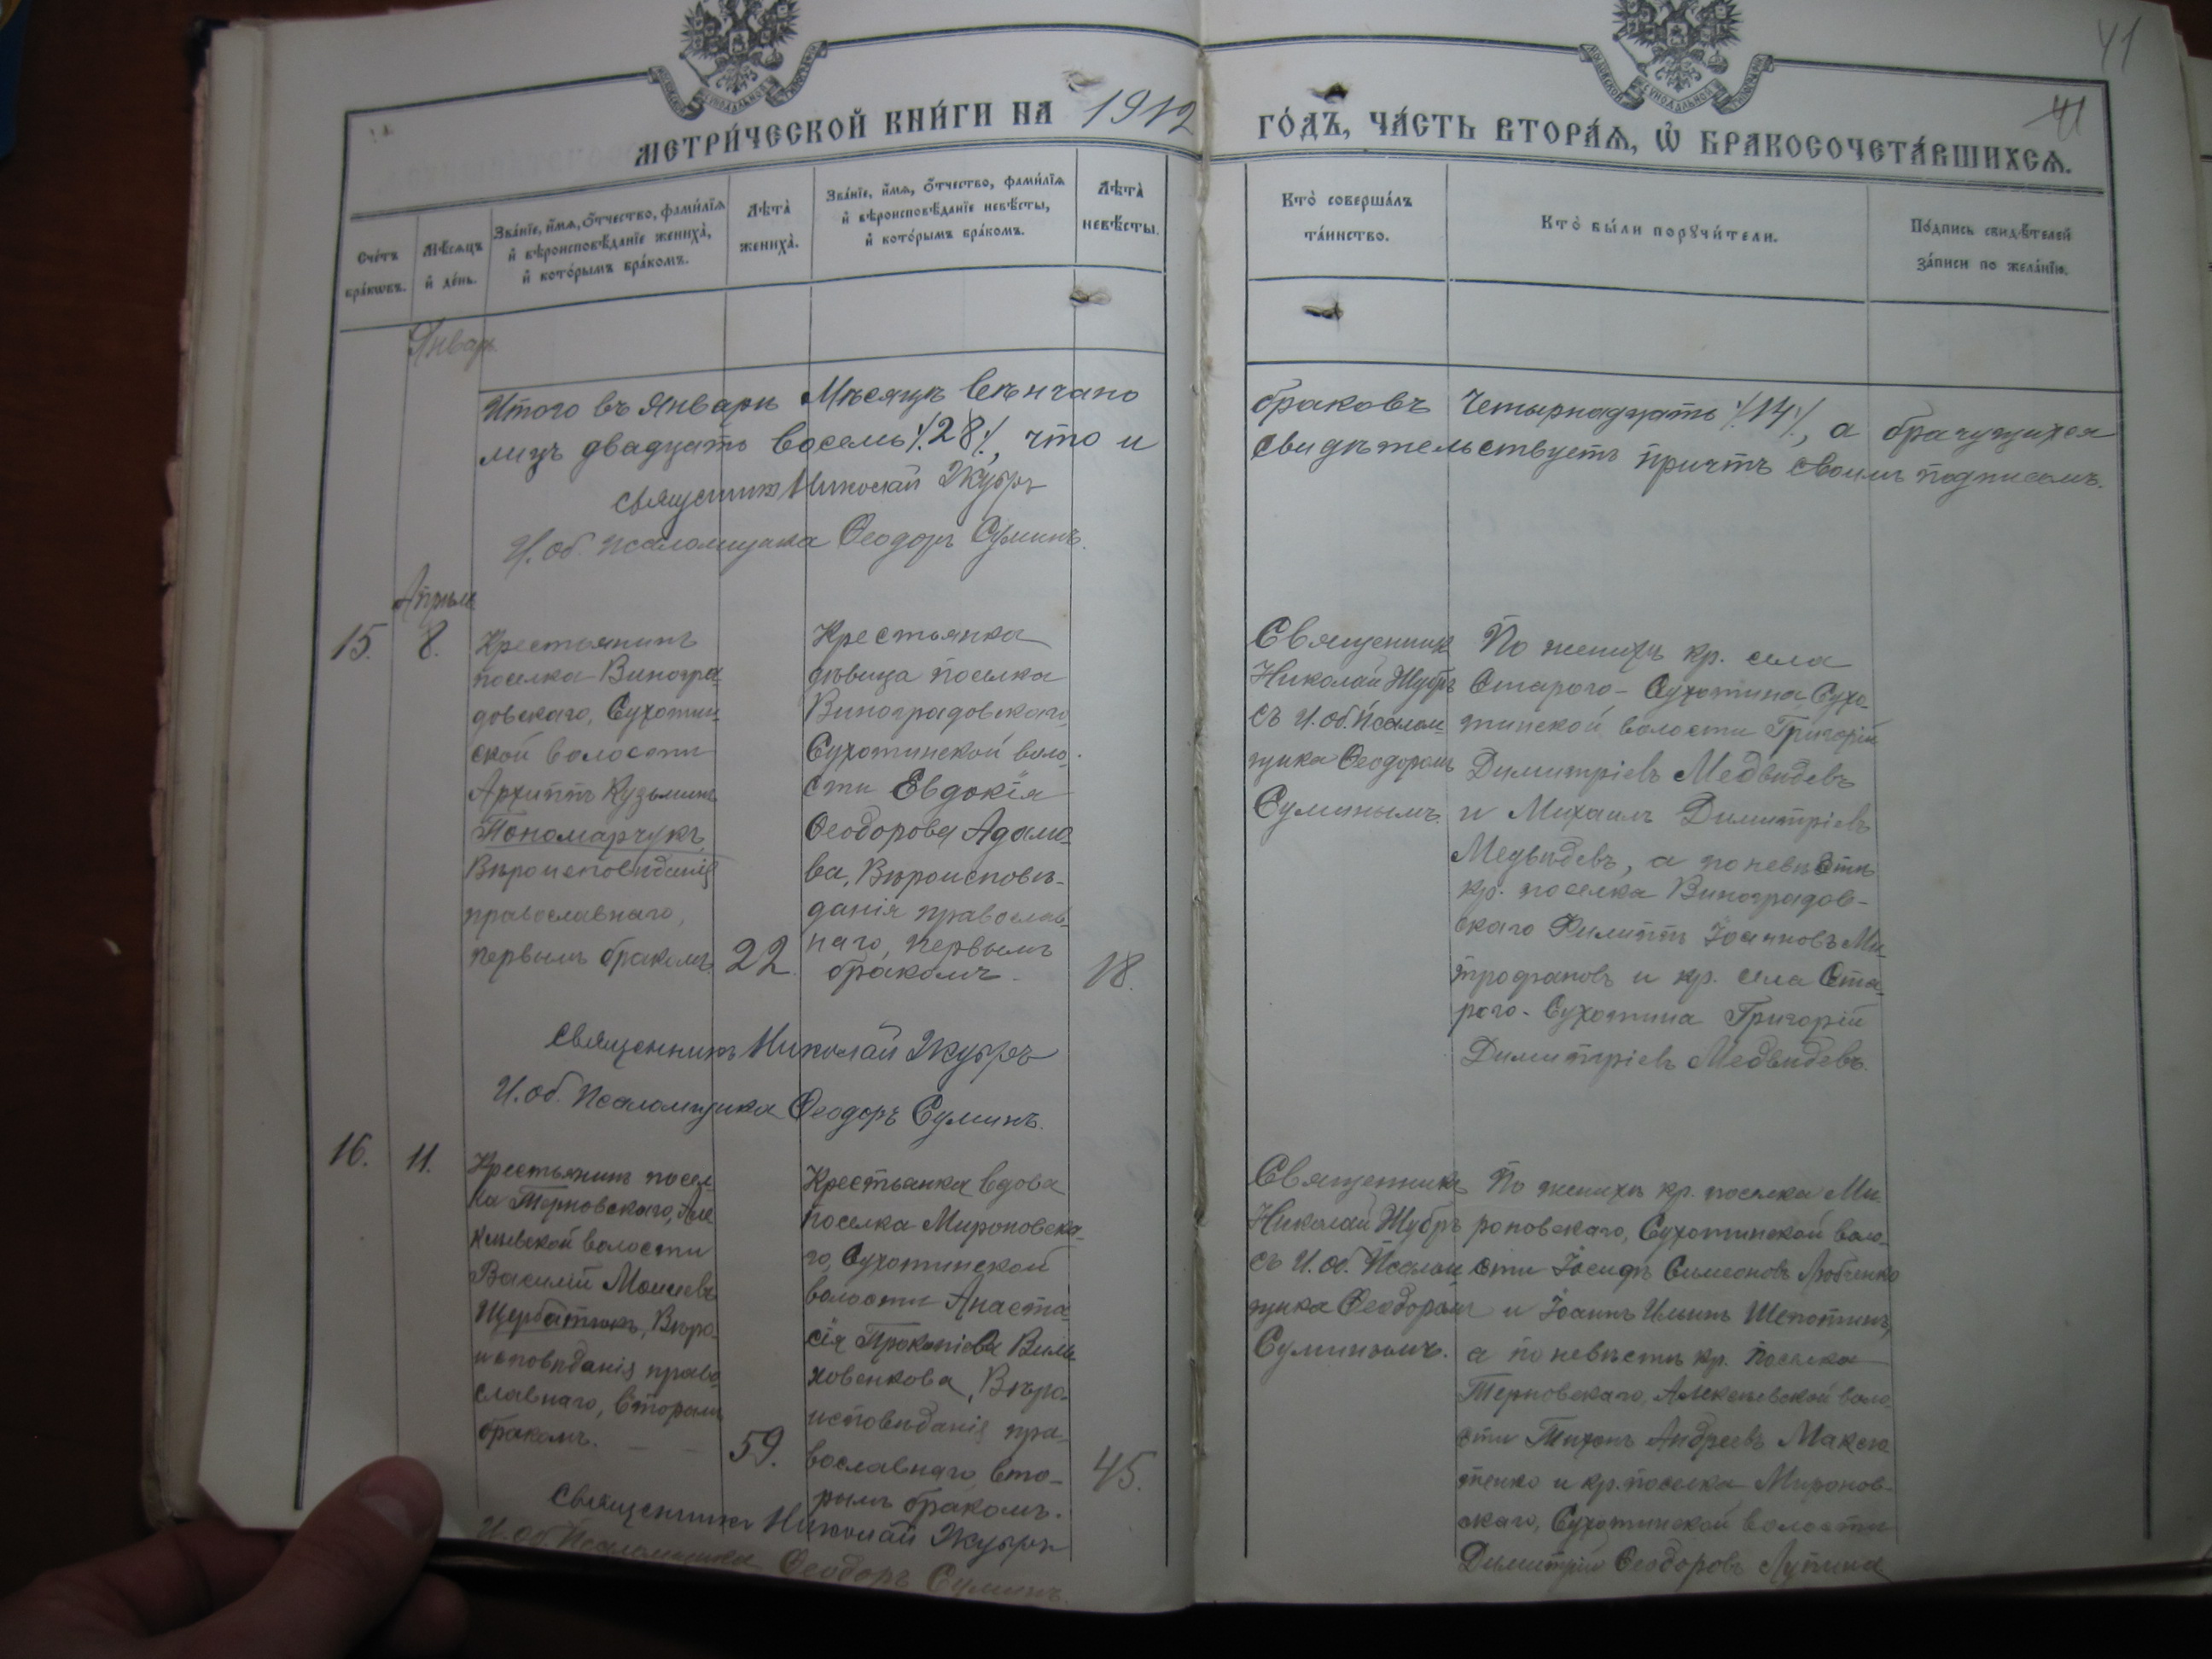 МЕТРИ́ЧЕСКОЙ КНИ́ГИ НА 1912 ГО́ДЪ, ЧА́СТЬ ВТОРА́Ѧ, Ѽ БРАКОСОЧЕТА́ВШИХСѦ.
41
41
Сче́тъ
бра́кѡвъ.
Мѣ́сѧцъ
и҆ де́нь.
Зва́нїе, и҆́мѧ, ѻ҆́тчество, фами́лїѧ
и҆ вѣроисповѣ́данїе жениха̀,
и҆ кото́рымъ бра́комъ.
Лѣ́та̀
жениха̀.
Зва́нїе, и҆́мѧ, ѻ҆́тчество, фами́лїѧ
и҆ вѣроисповѣ́данїе невѣ́сты,
и҆ кото́рымъ бра́комъ.
Лѣ́та̀
невѣ́сты.
Кто̀ соверша́лъ
та́инство.
Кто̀ бы́ли порꙋчи́тели.
По́дпись свидѣ́телей
за́писи по жела́нїю.
Январь
Итого въ Январѣ Мѣсяцѣ вѣнчано браковъ Четырнадцать ∕.14.∕, а брачущихся
лицъ двадцать восемь ∕.28.∕, что и свидѣтельствуетъ причтъ своимъ подписомъ.
Священникъ Николай Жубръ
И. об. псаломщика Ѳеодоръ Суминъ.
Апрѣль
15.
8.
Крестьянинъ
поселка Виногра-
довскаго, Сухотин-
ской волости
Архиппъ Кузьминъ
Пономарчукъ,
Вѣроисповѣданія
православнаго,
первымъ бракомъ.
22.
Крестьянка
дѣвица поселка
Виноградовскаго,
Сухотинской воло-
сти Евдокія
Ѳеодорова Адамо-
ва, Вѣроисповѣ-
данія православ-
наго, первымъ
бракомъ.
18.
Священникъ
Николай Жубръ
съ И. об. Псалом-
щика Ѳеодоромъ
Суминымъ.
По женихѣ кр. села
Стараго-Сухотина, Сухо-
тинской волости Григорій
Димитріевъ Медвѣдевъ
и Михаилъ Димитріевъ
Медвѣдевъ, а по невѣстѣ
кр. поселка Виноградов-
скаго Филиппъ Іоанновъ Ми-
трофановъ и кр. села Ста-
раго-Сухотина Григорій
Димитріевъ Медвѣдевъ.
Священникъ Николай Жубръ
И. об. Псаломщика Ѳеодоръ Суминъ.
16.
11.
Крестьянинъ посел-
ка Терновскаго, Але
ксѣевской волости
Василій Моисеевъ
Щербатюкъ, Вѣро-
исповѣданія право-
славнаго, вторымъ
бракомъ.
59.
Крестьянка вдова
поселка Мироновска-
го, Сухотинской
волости Анаста-
сія Прокопіева
ховенкова, Вѣро-
исповѣданія пра-
вославнаго вто-
рымъ бракомъ.
45.
Священникъ
Николай Жубръ
съ И. об. Псалом-
щика Ѳеодоромъ
Суминымъ.
По женихѣ кр. поселка Ми-
роновскаго, Сухотинской воло-
сти Іосифъ Симеоновъ Любченко
и Іоаннъ Ильинъ Шепотинъ,
а по невѣстѣ кр. поселка
Терновскаго, Алексѣевской воло-
сти Тихонъ Андреевъ Макси
тенко и кр. поселка Миронов-
скаго, Сухотинской волости
Димитрій Ѳеодоровъ Лупина
Священникъ Николай Жубръ
И. об. Псаломщика Ѳеодоръ Суминъ.